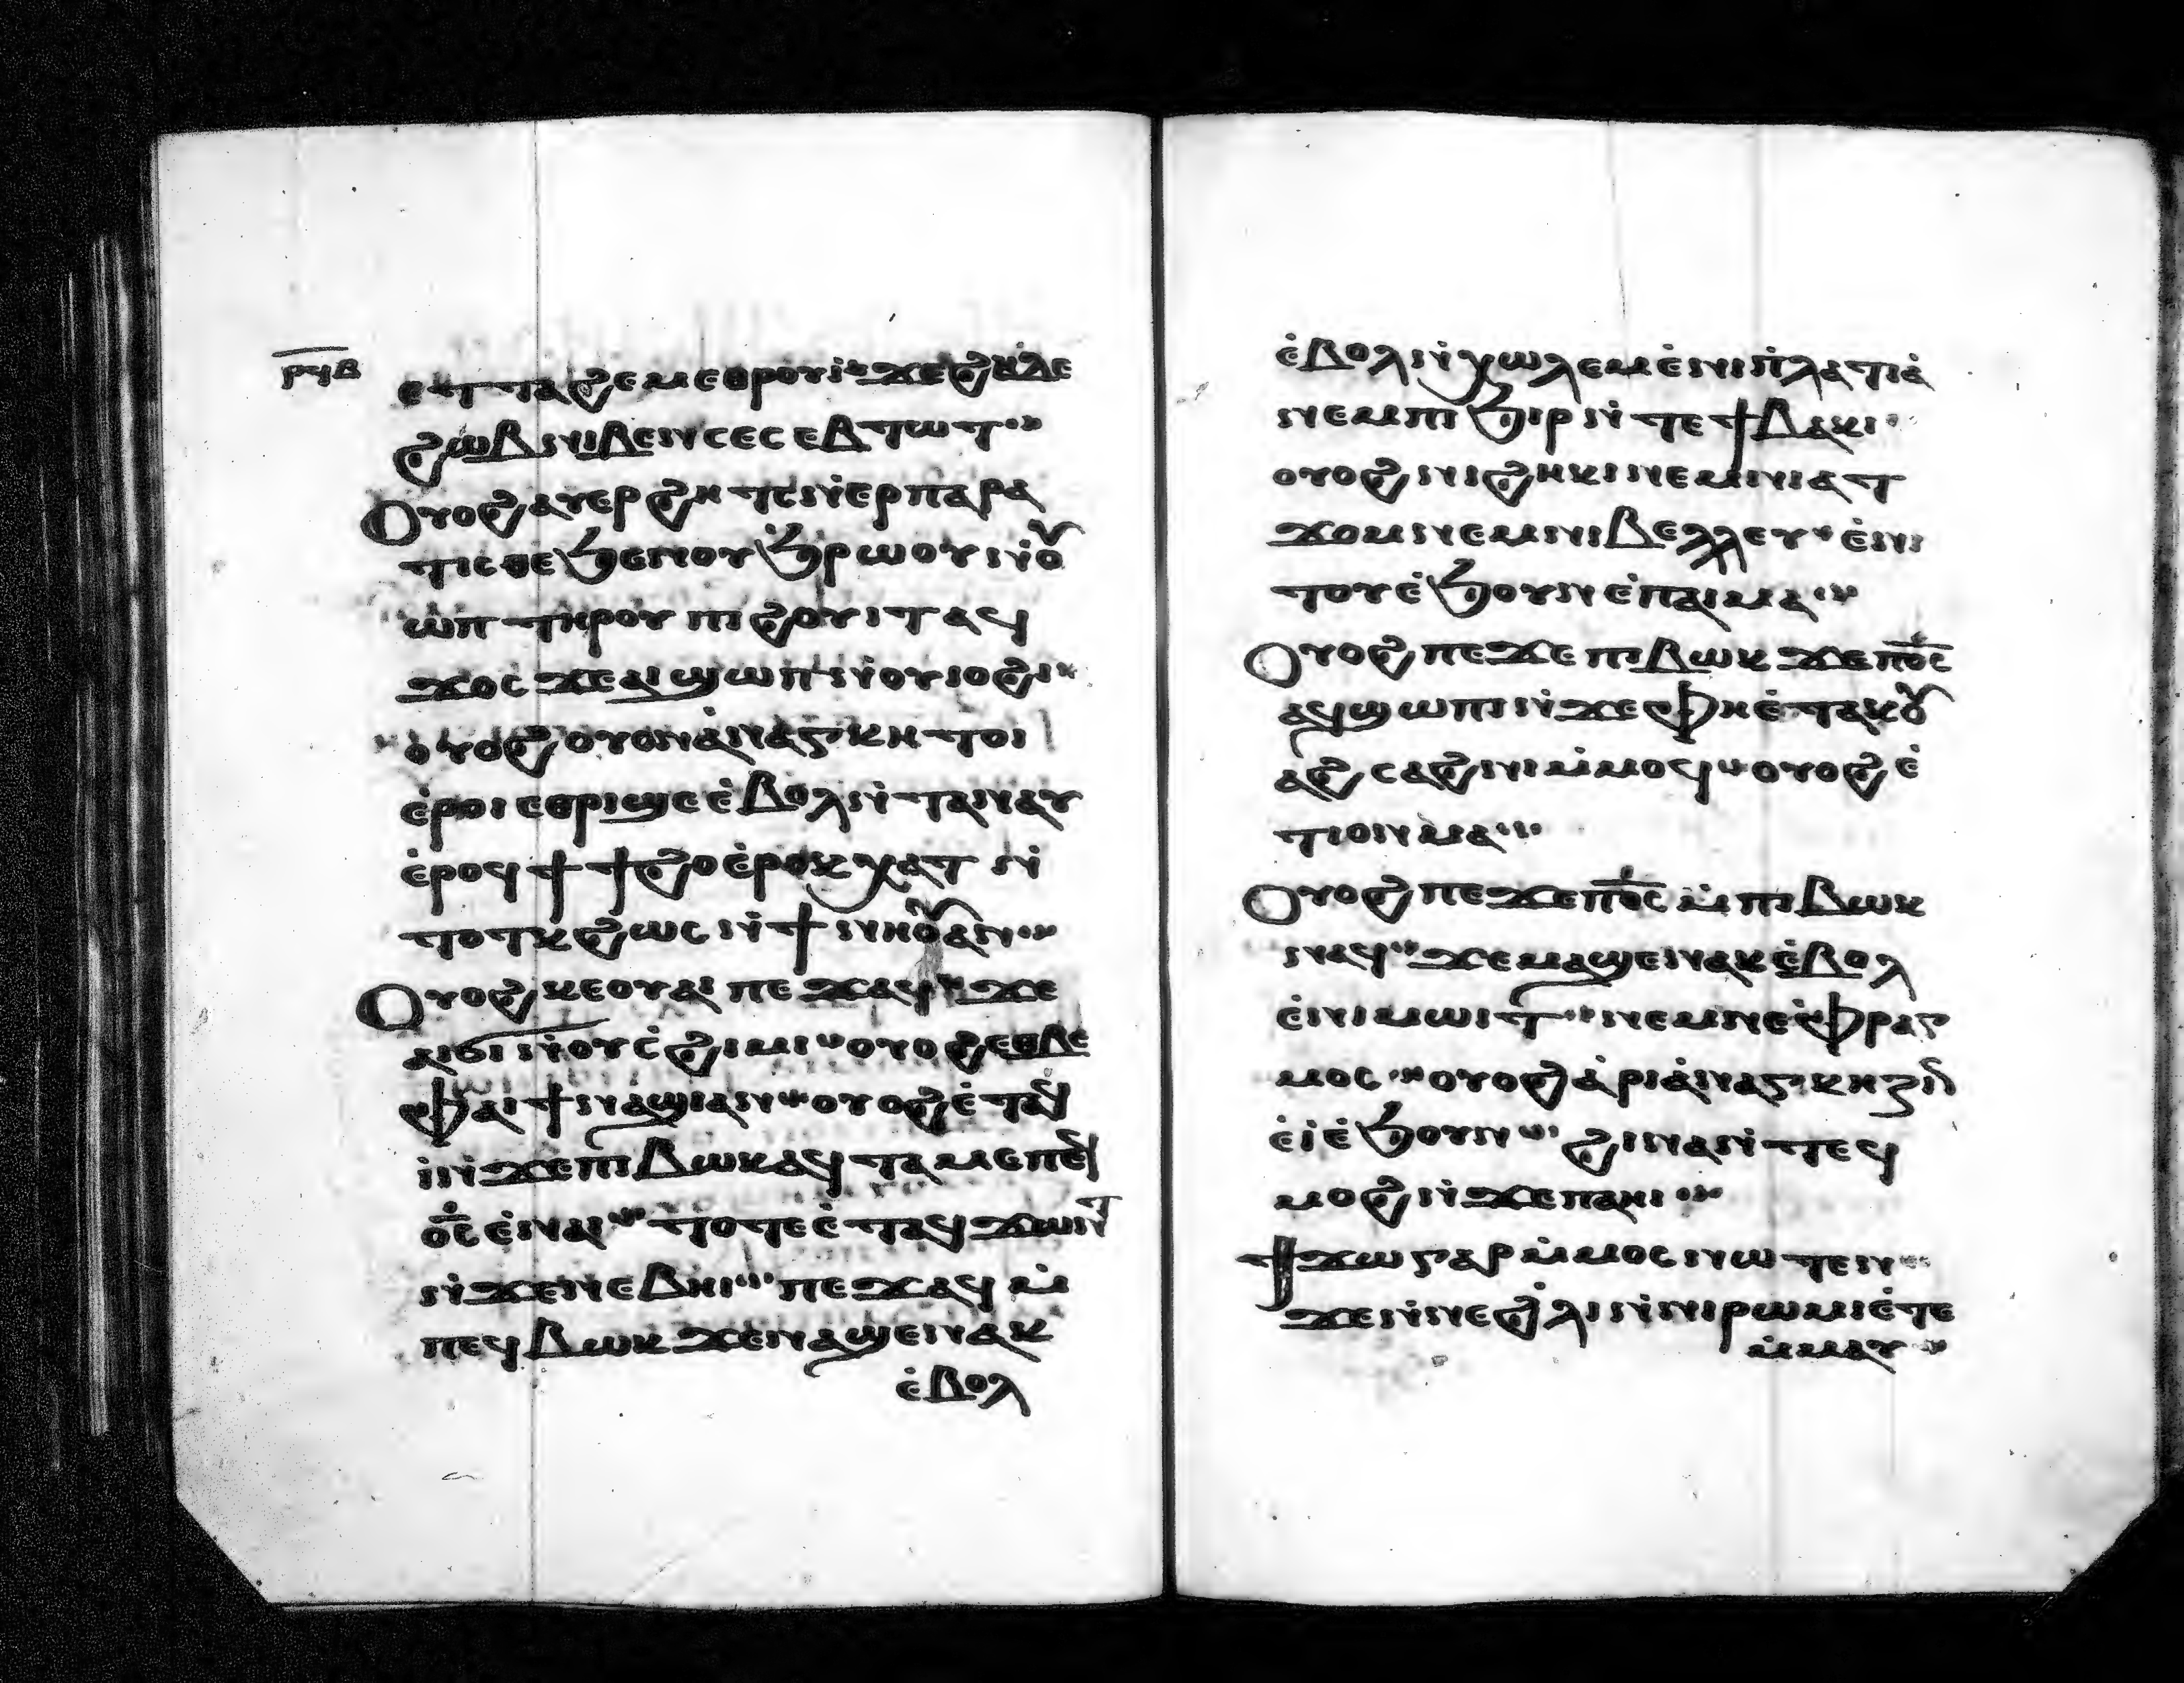 ⲣϥⲃ
ⲉⲧⲧⲁϩⲉⲙⲉⲑⲣⲟⲩⲓ̀ ϫⲉϩⲏⲇⲉ
ϩⲱⲃ ⲛⲓⲃⲉⲛ ⲥⲉⲥⲉⲃⲧⲱⲧ
Ⲟⲩⲟϩ ⲁⲩⲉⲣϩⲏⲧⲥ ⲛ̀ⲉⲣⲡⲁⲣⲁ
ⲧⲓⲥⲑⲉ ϧⲉⲛ ⲟⲩϧⲣⲱⲟⲩ ⲛ̀ⲟⲩ
ⲱⲧ ⲧⲏⲣⲟⲩ ⲡⲓϩⲟⲩⲓⲧ ⲁϥ
ϫⲟⲥ ϫⲉ ⲁⲓϣⲱⲡ ⲛ̀ⲟⲩⲓⲟϩⲓ
ⲟⲩⲟϩ ⲟⲩⲟⲛ ⲁ̀ⲛⲁⲅⲕⲏ ⲧⲟⲓ
ⲉ̀ⲣⲟⲓ ⲉⲑⲣⲓϣⲉ ⲉ̀ⲃⲟⲗ ⲛ̀ⲧⲁⲛⲁⲩ
ⲉ̀ⲣⲟϥ ϯϯϩⲟ ⲉ̀ⲣⲟⲕ ⲭⲁⲧ ⲛ̀
ⲧⲟⲧⲕ ϩⲱⲥ ⲛ̀ϯⲛⲏⲟⲩ ⲁⲛ
Ⲟⲩⲟϩ ⲕⲉⲟⲩⲁⲓ ⲡⲉϫⲁϥ ϫⲉ
ⲁⲓϭⲓ ⲛ̀ⲟⲩⲥ̀ϩⲓⲙⲓ ⲟⲩⲟϩ ⲉⲑⲃⲉ
ⲫⲁⲓ ϯⲛⲁϣⲓ ⲁⲛ ⲟⲩⲟϩ ⲉ̀ⲧⲁϥ
ⲓ̀ ⲛ̀ϫⲉ ⲡⲓⲃⲱⲕ ⲁϥⲧⲁⲙⲉ ⲡⲉϥ
ⲟ̅ⲥ̅ ⲉ̀ⲛⲁⲓ ⲧⲟⲧⲉ ⲉ̀ⲧⲁϥϫⲱⲛⲧ
ⲛ̀ϫⲉ ⲛⲉⲃⲏⲓ ⲡⲉϫⲁϥ ⲙ̀
ⲡⲉϥⲃⲱⲕ ϫⲉ ⲙⲁϣⲉⲛⲁⲕ
ⲉ̀ⲃⲟⲗ
ⲉ̀ⲃⲟⲗ ⲛ̀ⲭⲱⲗⲉⲙ ⲉ̀ⲛⲓⲡ̀ⲗⲁⲧⲓⲁ̀
ⲛⲉⲙ ⲡⲓϧⲓⲣ ⲛ̀ⲧⲉ ϯⲃⲁⲕⲓ
ⲟⲩⲟϩ ⲛⲓϩⲏⲕⲓ ⲛⲉⲙ ⲛⲓⲁⲧ
ϫⲟⲙ ⲛⲉⲙ ⲛⲓⲃⲉⲗⲗⲉⲩ ⲉ̀ⲛⲓ
ⲧⲟⲩ ⲉ̀ϧⲟⲩⲛ ⲉ̀ⲡⲁⲓⲙⲁ
Ⲟⲩⲟϩ ⲡⲉϫⲉ ⲡⲓⲃⲱⲕ ϫⲉ ⲡⲟ̅ⲥ̅
ⲁϥϣⲱⲡⲓ ⲛ̀ϫⲉ ⲫⲏ ⲉ̀ⲧⲁⲕⲟⲩ
ⲁϩⲥⲁϩⲛⲓ ⲙ̀ⲙⲟϥ ⲟⲩⲟϩ ⲉ̀
ⲧⲓ ⲟⲛ ⲙⲁ
Ⲟⲩⲟϩ ⲡⲉϫⲉ ⲡⲟ̅ⲥ̅ ⲙ̀ⲡⲓⲃⲱⲕ
ⲛⲁϥ ϫⲉ ⲙⲁϣⲉⲛⲁⲕ ⲉ̀ⲃⲟⲗ
ⲉ̀ⲛⲓⲙⲱⲓⲧ ⲛⲉⲙ ⲛⲉⲫⲣⲁⲅ
ⲙⲟⲥ ⲟⲩⲟϩ ⲁ̀ⲣⲓⲁ̀ⲛⲁⲅⲕⲏⲍⲓⲛ
ⲉ̀ⲓ̀ ⲉ̀ϧⲟⲩⲛ ϩⲓⲛⲁ ⲛ̀ⲧⲉϥ
ⲙⲟϩ ⲛ̀ϫⲉ ⲡⲁⲏⲓ
Ϯϫⲱ ⲅⲁⲣ ⲙ̀ⲙⲟⲥ ⲛⲱⲧⲉⲛ
ϫⲉ ⲛ̀ⲛⲉϩ̀ⲗⲓ ⲛ̀ⲛⲓⲣⲱⲙⲓ ⲉ̀ⲧⲉ
ⲙ̀ⲙⲁⲩ